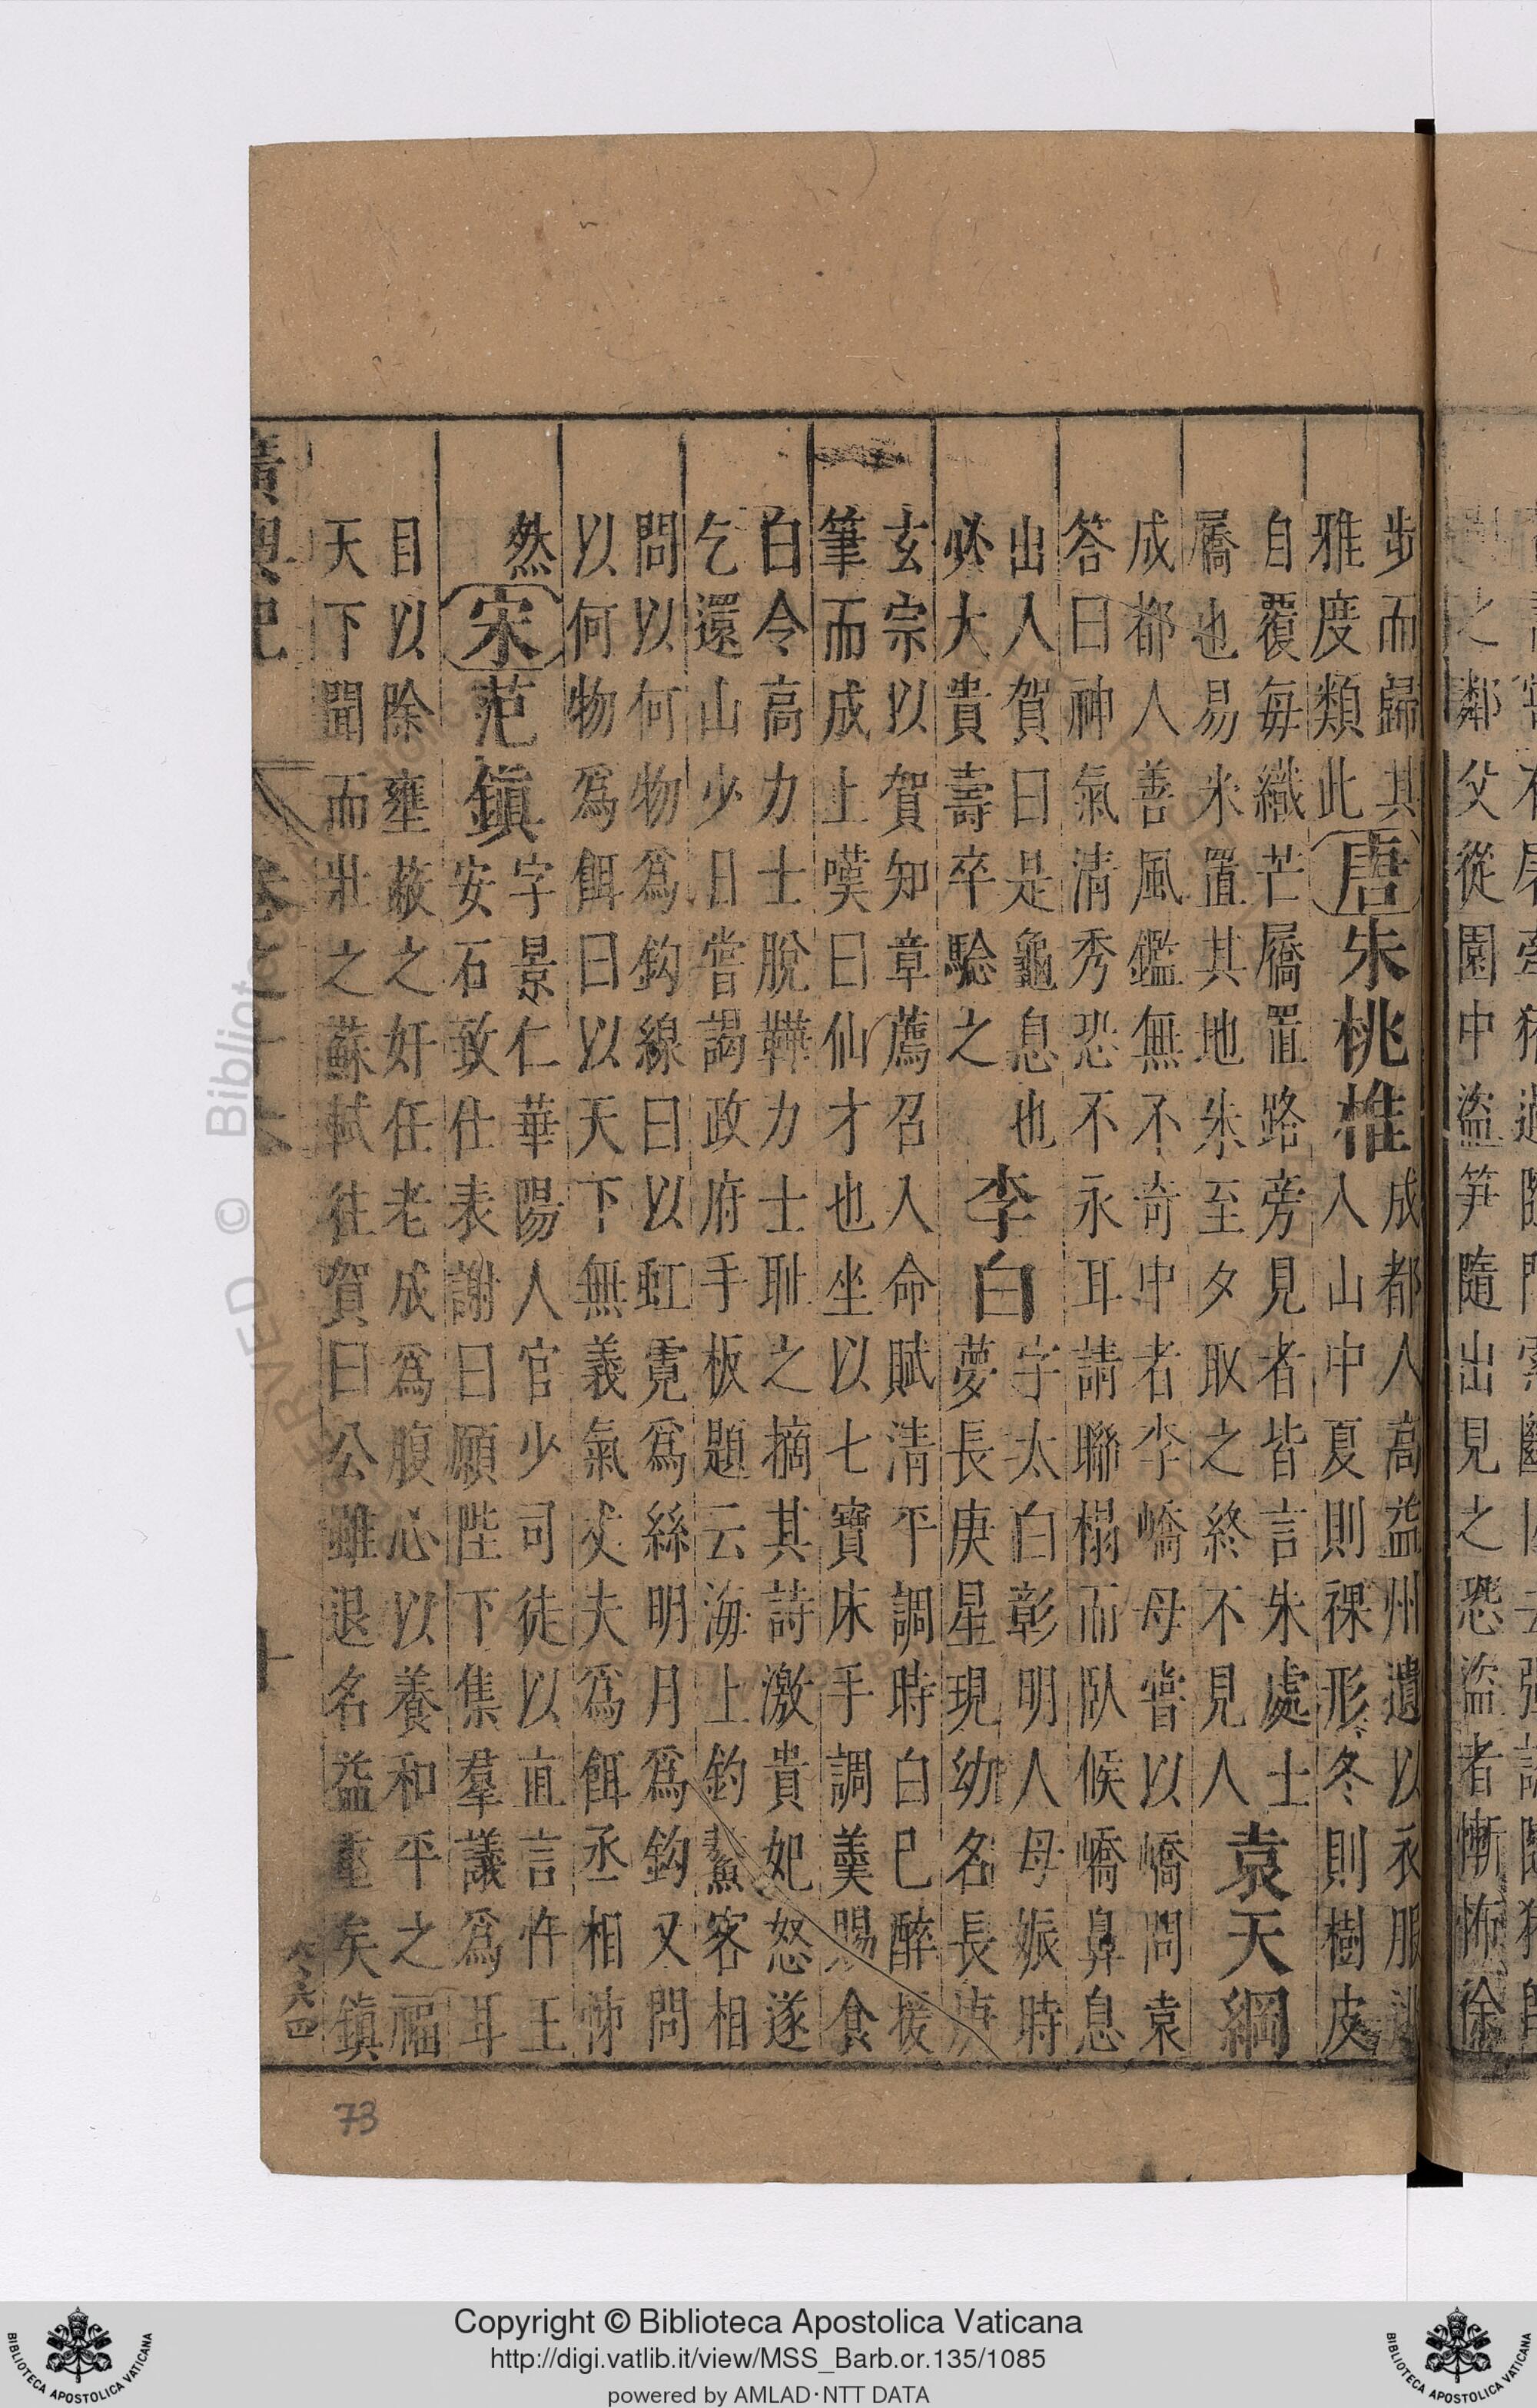 步而歸其
雅度類此
唐
朱桃椎
成都人高益州遺以衣服
人山中夏則裸形冬則樹皮
自覆每織芒屩置路旁見者皆言朱處士
屩也易米置其地朱至夕取之終不見人
袁天綱
成都人善風鑑無不奇中者李嶠母嘗以嶠問袁
答曰神氣清秀恐不永耳請聯榻而臥候嶠鼻息
出人賀曰是龜息也
必大貴壽卒驗之
李白
字太白彰明人母娠時
夢長庚星現幼名長庚
玄宗以賀知章薦召入命賦清平調時白已醉援
筆而成上嘆曰仙才也坐以七寶床手調羹賜食
白令高力士脫鞾力士耻之摘其詩激貴妃怒遂
乞還山少日嘗謁政府手板題云海上釣鰲客相
問以何物爲鈎線曰以虹霓爲絲明月爲鈎又問
以何物爲餌曰以天下無義氣丈夫爲餌丞相悚
然
宋
范鎮
字景仁華陽人官少司徒以直言忤王
安石致仕表謝曰願陛下集羣議爲耳
目以除壅蔽之奸任老成爲腹心以養和平之福
天下聞而壯之蘇軾往賀曰公雖退名益重矣鎮
廣輿記
卷之十六
十
之鄰父從園中盜筍隨出見之恐盜者慚拖徐
73
Copyright © Biblioteca Apostolica Vaticana
http://digi.vatlib.it/view/MSS_Barb.or.135/1085
powered by AMLAD·NTT DATA
BIBLIOTECA APOSTOLICA VATICANA
BIBLIOTECA APOSTOLICA VATICANA